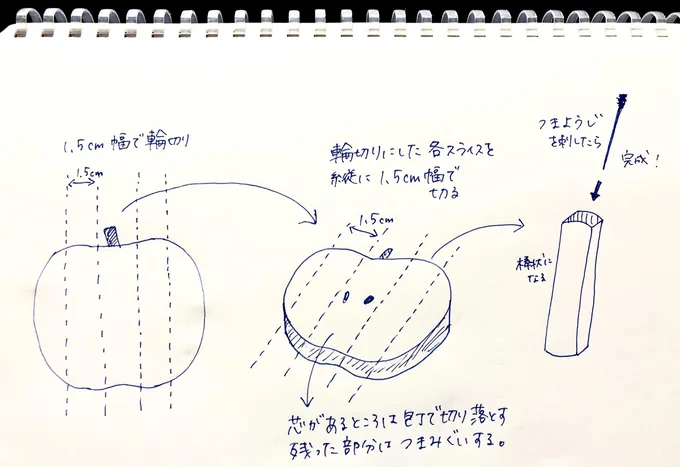 1.5cm 幅で輪切り
1.5cm
輪切りにした 各スライスを
縦に 1.5cm幅で
切る
1.5cm
芯があるところは包丁で切り落とす
残った部分は つまみぐいする。
つまようじ
を刺したら
完成！
棒状に
なる